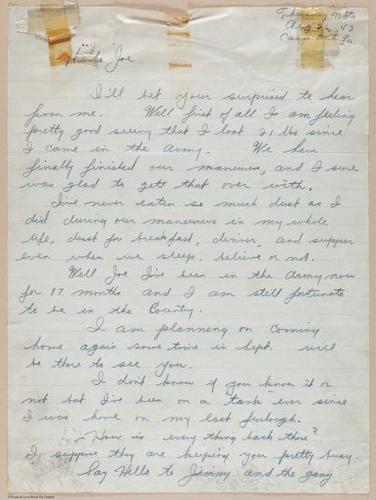 Thursday Nite
Aug 26, 43
Camp Polk, La.
"Hello Joe"
I'll bet your surprised to hear
from me. Well first of all I am feeling
pretty good seeing that I lost 21 lbs since
I came in the Army. We have
finally finished our maneuvers, and I sure
was glad to get that over with.
I've never eaten so much dust as I
did during our maneuvers in my whole
life, dust for breakfast, dinner, and supper
even when we sleep. believe or not.
Well Joe I've been in the Army now
for 17 months and I am still fortunate
to be in the Country.
I am plannning on coming
home again some time in Sept. will
be there to see you.
I don't know if you know it or
not but I've been on a "tank" ever since
I was home on my last furlough.
How is every thing back there?
I suppose they are keeping you pretty busy.
Say Hello to Jimmy and the gang